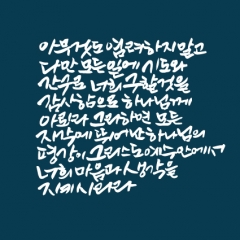 아무것도 염려하지말고
다만 모든일에 기도와
간구로 너희 구할것을
감사함으로 하나님께
아뢰라 그리하면 모든
지각에 뛰어난 하나님의
평강이 그리스도 예수 안에서
너희 마음과 생각을
지키시리라